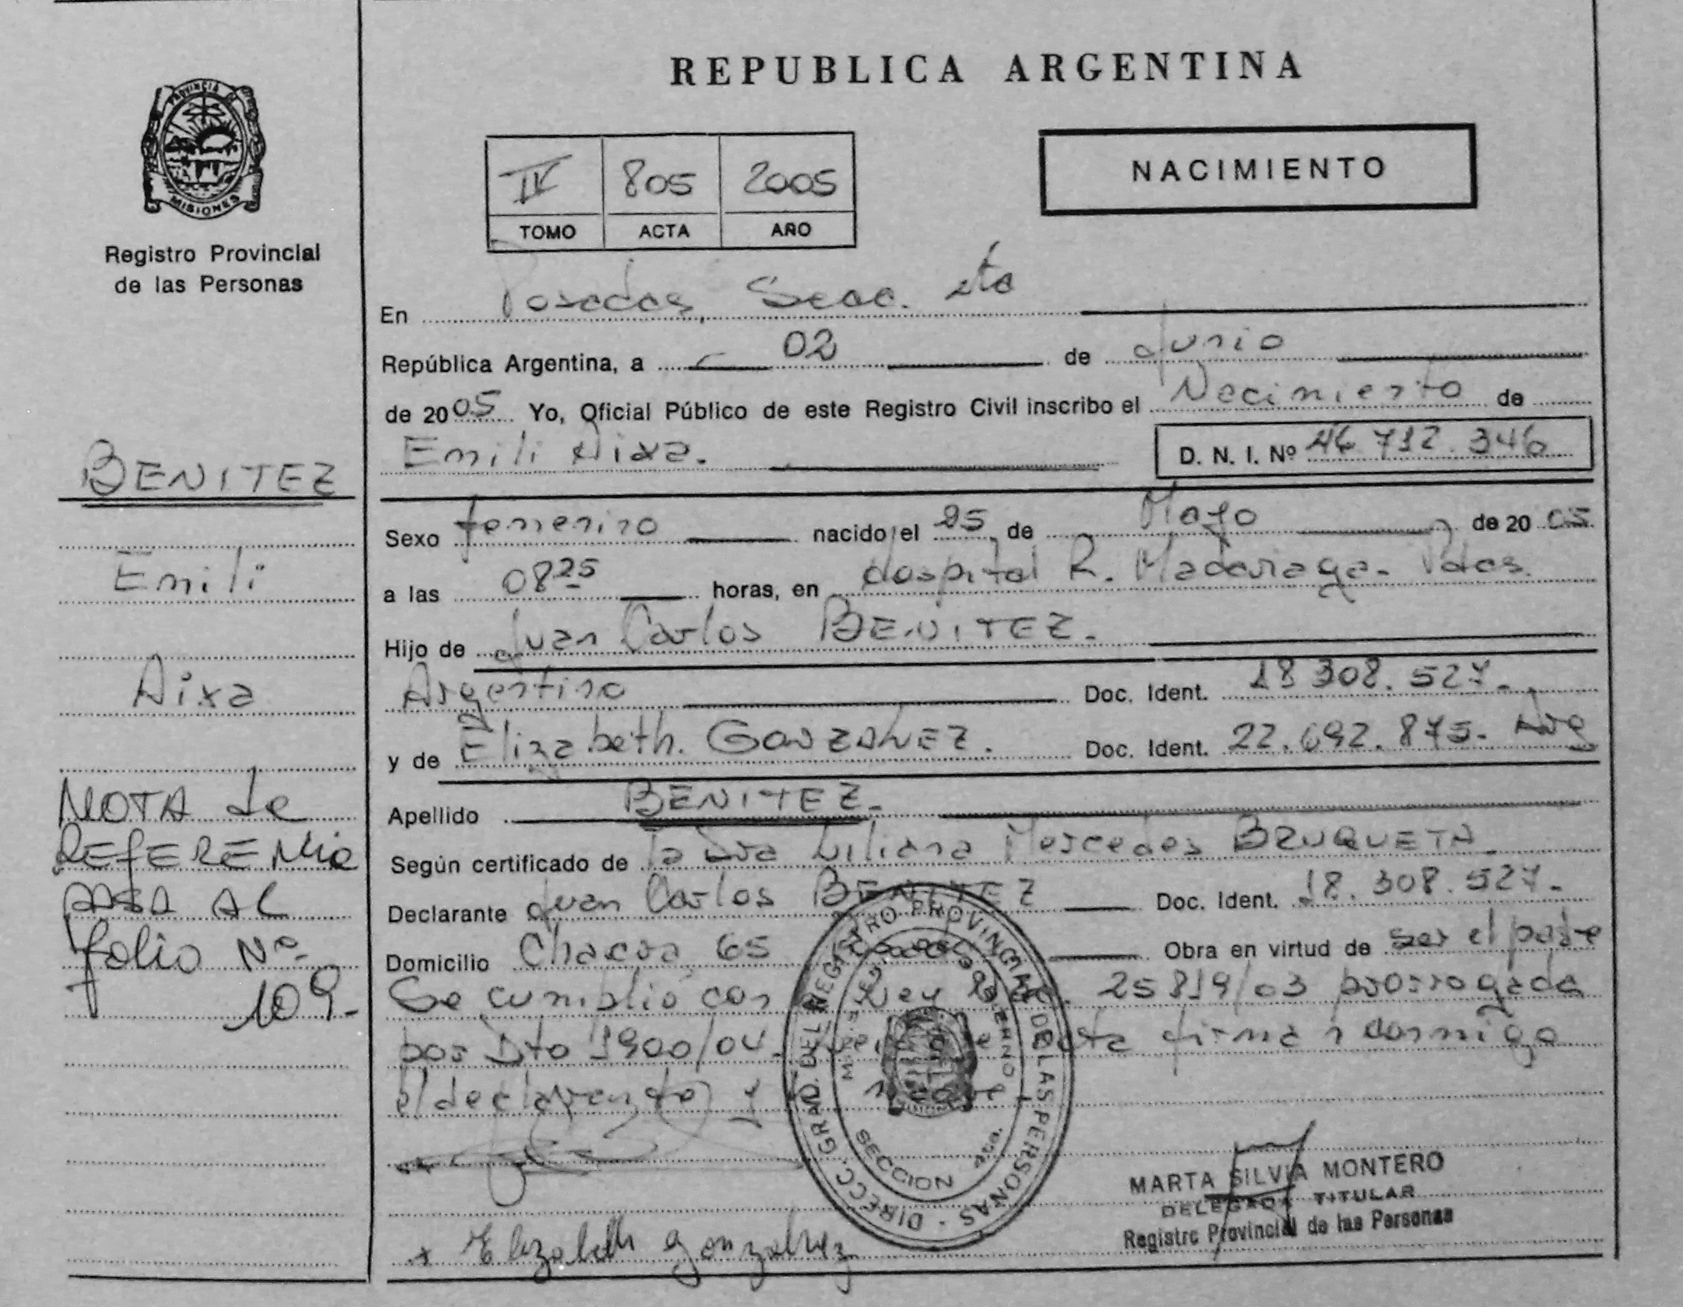 REPUBLICA ARGENTINA
PROVINCIA DE
MISIONES
Registro Provincial
de las Personas
IV 805 2005
TOMO ACTA AÑO
NACIMIENTO
En Posadas, Secc. 4ta
República Argentina, a 02 de Junio
de 2005 Yo, Oficial Público de este Registro Civil inscribo el Nacimiento de
Emili Aixa. D. N. I. Nº 46.712.346
BENITEZ
Emili
Aixa
NOTA de
REFERENCIA
PASA AL
folio Nº
109.
Sexo femenino nacido el 25 de Mayo de 2005
a las 08 25 horas, en Hospital R. Madariaga - Pdas.
Hijo de Juan Carlos BENITEZ.
Argentino Doc. Ident. 18.308.527.
y de Elizabeth. GONZALEZ. Doc. Ident. 22.692.875. Arg
Apellido BENITEZ.
Según certificado de la Dra Liliana Mercedes BRUQUETA.
Declarante Juan Carlos BENITEZ Doc. Ident. 18.308.527.
Domicilio Chacra 65 Obra en virtud de ser el padre
Se cumplió con Ley 25819/03 prorrogada
por Dto 1900/04. acta firman conmigo
el declarante y la madre.
DIRECC. GRAL. DEL REGISTRO PROVINCIAL DE LAS PERSONAS
GOBIERNO
SECCION 4ta.
MARTA SILVIA MONTERO
DELEGADA TITULAR
Registro Provincial de las Personas
Elizabeth Gonzalez